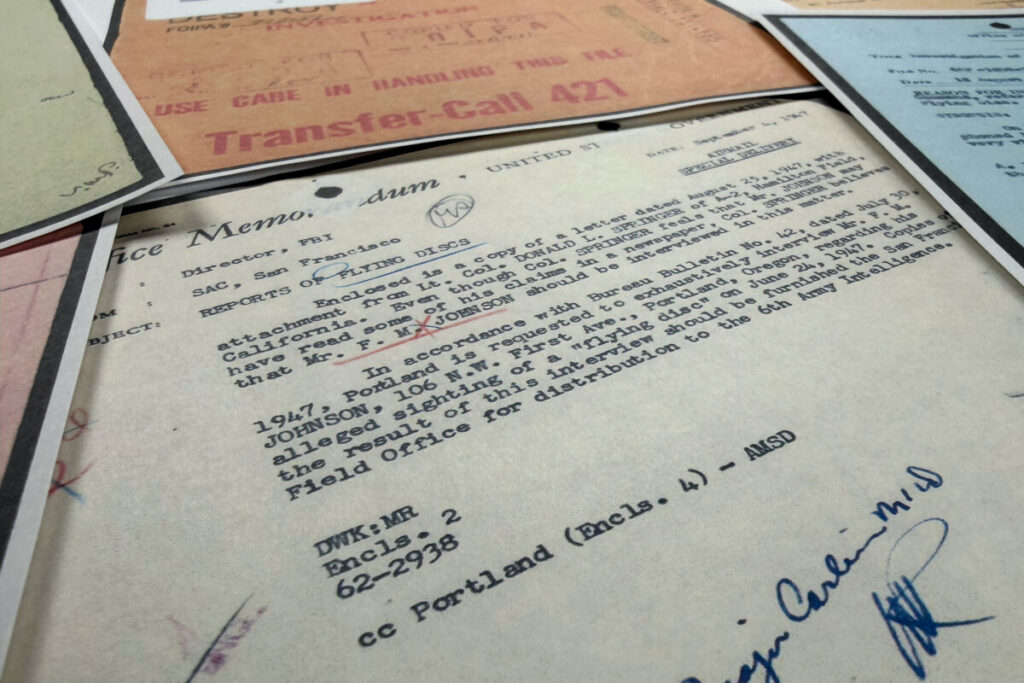 DESTROY
FOIPA #
INVESTIGATION
USE CARE IN HANDLING THIS FILE
Transfer-Call 421
fice Memo. dum
UNITED ST
OVERNMENT
DATE: September 4, 1947
AIRMAIL
SPECIAL DELIVERY
Director, FBI
SAC, San Francisco
BJECT:
REPORTS OF FLYING DISCS
Enclosed is a copy of a letter dated August 25, 1947, with
attachment from Lt. Col. DONALD L. SPRINGER of A-2, Hamilton Field,
California. Even though Col. SPRINGER feels that Mr. JOHNSON may
have read some of his claims in a newspaper, Col. SPRINGER believes
that Mr. F. M. JOHNSON should be interviewed in this matter.
In accordance with Bureau Bulletin No. 42, dated July 30,
1947, Portland is requested to exhaustively interview Mr. F. M.
JOHNSON, 106 N.W. First Ave., Portland, Oregon, regarding his
alleged sighting of a "flying disc" on June 24, 1947. Copies of
the result of this interview should be furnished the San Francisco
Field Office for distribution to the 6th Army intelligence.
DWK:MR
Encls. 2
62-2938
cc Portland (Encls. 4) - AMSD
File No.
Date
REASON FOR IN
SYNOPSIS: